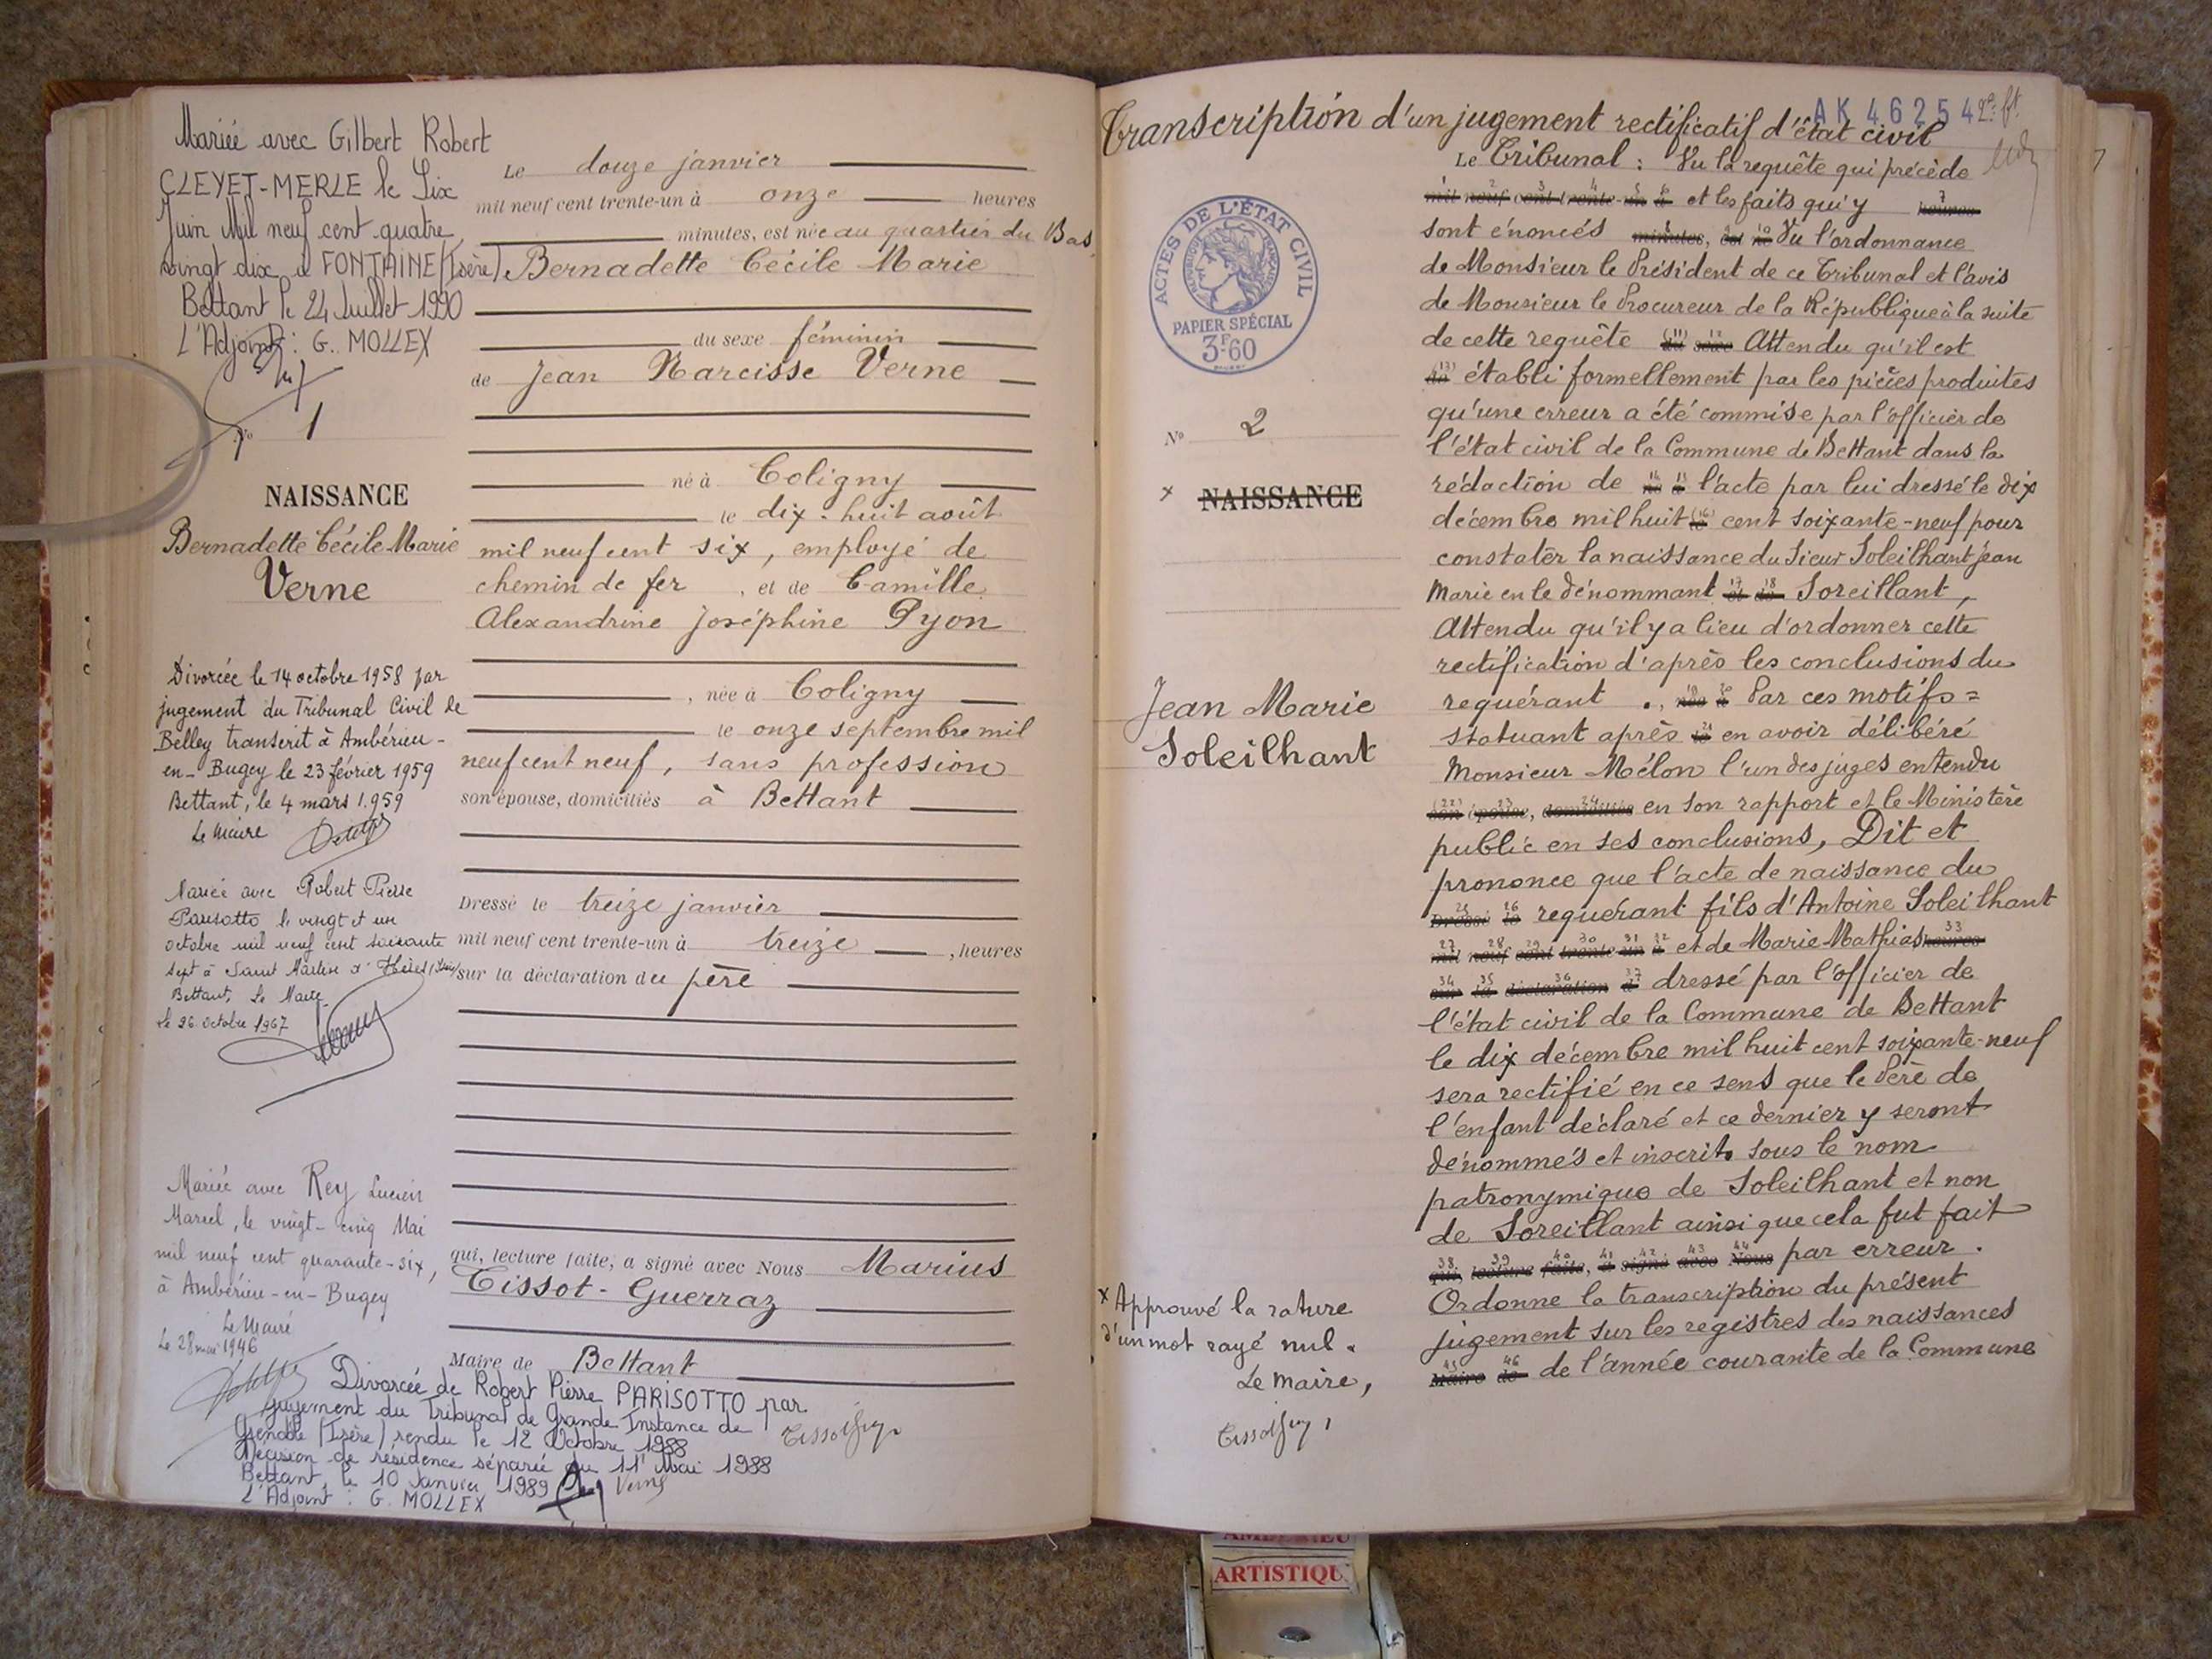 Mariée avec Gilbert Robert
CLEYET-MERLE le Six
Juin Mil neuf cent quatre
vingt dix à FONTAINE (Isère)
Bettant le 24 Juillet 1990
L'Adjoint : G. MOLLEX
N° 1
NAISSANCE
Bernadette Cécile Marie
Verne
Divorcée le 14 octobre 1958 par
jugement du Tribunal Civil de
Belley transcrit à Ambérieu-
en-Bugey le 23 février 1959
Bettant, le 4 mars 1.959
Le Maire
Mariée avec Robert Pierre
Parisotto le vingt et un
octobre mil neuf cent soixante
sept à Saint Martin d'Hères (Isère)
Bettant, Le Maire
Le 26 octobre 1967
Mariée avec Rey Lucien
Marcel, le vingt-cinq Mai
mil neuf cent quarante-six,
à Ambérieu-en-Bugey
Le Maire
Le 28 mai 1946
Le douze janvier
mil neuf cent trente-un à onze heures
minutes, est née au quartier du Bas
Bernadette Cécile Marie
du sexe féminin
de Jean Narcisse Verne
né à Coligny
le dix-huit août
mil neuf cent six, employé de
chemin de fer, et de Camille
Alexandrine Joséphine Pyon
, née à Coligny
le onze septembre mil
neuf cent neuf, sans profession
son épouse, domiciliés à Bettant
Dressé le treize janvier
mil neuf cent trente-un à treize, heures
sur la déclaration du père
qui, lecture faite, a signé avec Nous Marius
Tissot-Guerraz
Maire de Bettant
Divorcée de Robert Pierre PARISOTTO par
jugement du Tribunal de Grande Instance de
Grenoble (Isère) rendu le 12 Octobre 1988
Décision de résidence séparée du 11 Mai 1988
Bettant, le 10 Janvier 1989
L'Adjoint : G. MOLLEX
Verne
Transcription d'un jugement rectificatif d'état civil
AK 46254
ACTES DE L'ÉTAT CIVIL
RÉPUBLIQUE FRANÇAISE
PAPIER SPÉCIAL
3F60
N° 2
x NAISSANCE
Jean Marie
Soleilhant
x Approuvé la rature
d'un mot rayé nul.
Le Maire,
Le Tribunal : Vu la requête qui précède
mil neuf cent trente-un à et les faits qui y heures
sont énoncés minutes, est né Vu l'ordonnance
de Monsieur le Président de ce Tribunal et l'avis
de Monsieur le Procureur de la République à la suite
de cette requête du sexe Attendu qu'il est
de établi formellement par les pièces produites
qu'une erreur a été commise par l'officier de
l'état civil de la Commune de Bettant dans la
rédaction de né à l'acte par lui dressé le dix
décembre mil huit le cent soixante-neuf pour
constater la naissance du Sieur Soleilhant Jean
Marie en le dénommant et de Soreillant,
Attendu qu'il y a lieu d'ordonner cette
rectification d'après les conclusions du
requérant ., née à Par ces motifs =
statuant après le en avoir délibéré
Monsieur Mélon l'un des juges entendu
son épouse, domiciliés en son rapport et le Ministère
public en ses conclusions, Dit et
prononce que l'acte de naissance du
Dressé le requérant fils d'Antoine Soleilhant
mil neuf cent trente-un à et de Marie Mathias heures
sur la déclaration d dressé par l'officier de
l'état civil de la Commune de Bettant
le dix décembre mil huit cent soixante-neuf
sera rectifié en ce sens que le Père de
l'enfant déclaré et ce dernier y seront
dénommés et inscrits sous le nom
patronymique de Soleilhant et non
de Soreillant ainsi que cela fut fait
qui, lecture faite, a signé avec Nous par erreur.
Ordonne la transcription du présent
jugement sur les registres des naissances
Maire de de l'année courante de la Commune
ARTISTIQU